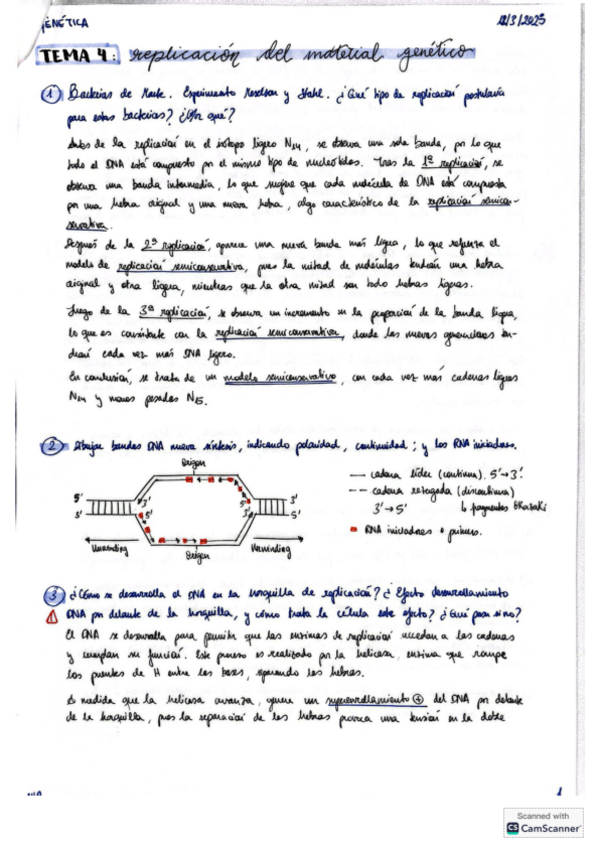 GENÉTICA 12/3/2025
TEMA 4: replicación del material genético
1 Bacterias de Marte. Experimento Meselson y Stahl. ¿Qué tipo de replicación postularía
para estas bacterias? ¿Por qué?
Antes de la replicación en el isótopo ligero N14, se observa una sola banda, por lo que
todo el DNA está compuesto por el mismo tipo de nucleótidos. Tras la 1ª replicación, se
observa una banda intermedia, lo que sugiere que cada molécula de DNA está compuesta
por una hebra original y una nueva hebra, algo característico de la replicación semicon-
servativa.
Después de la 2ª replicación, aparece una nueva banda más ligera, lo que refuerza el
modelo de replicación semiconservativa, pues la mitad de moléculas tendrán una hebra
original y otra ligera, mientras que la otra mitad son todo hebras ligeras.
Luego de la 3ª replicación, se observa un incremento en la proporción de la banda ligera,
lo que es consistente con la replicación semiconservativa, donde las nuevas generaciones ten-
drán cada vez más DNA ligero.
En conclusión, se trata de un modelo semiconservativo, con cada vez más cadenas ligeras
N14 y menos pesadas N15.
2 Dibujar bandas DNA nueva síntesis, indicando polaridad, continuidad; y los RNA iniciadores.
Origen
5' 3' 3'
3' 5' 3' 5'
Origen
Unwinding Unwinding
— cadena líder (continua). 5'→3'.
-- cadena retrasada (discontinua)
3'→5' ↳ fragmentos Okazaki
RNA iniciadores o primers.
3 ¿Cómo se desarrolla el DNA en la horquilla de replicación? ¿Efecto desenrollamiento
DNA por delante de la horquilla, y cómo trata la célula este efecto? ¿Qué pasa si no?
El DNA se desarrolla para permitir que las enzimas de replicación accedan a las cadenas
y cumplan su función. Este proceso es realizado por la helicasa, enzima que rompe
los puentes de H entre las bases, separando las hebras.
A medida que la helicasa avanza, genera un superenrollamiento + del DNA por delante
de la horquilla, pues la separación de las hebras provoca una tensión en la doble
1
Scanned with
CS CamScanner